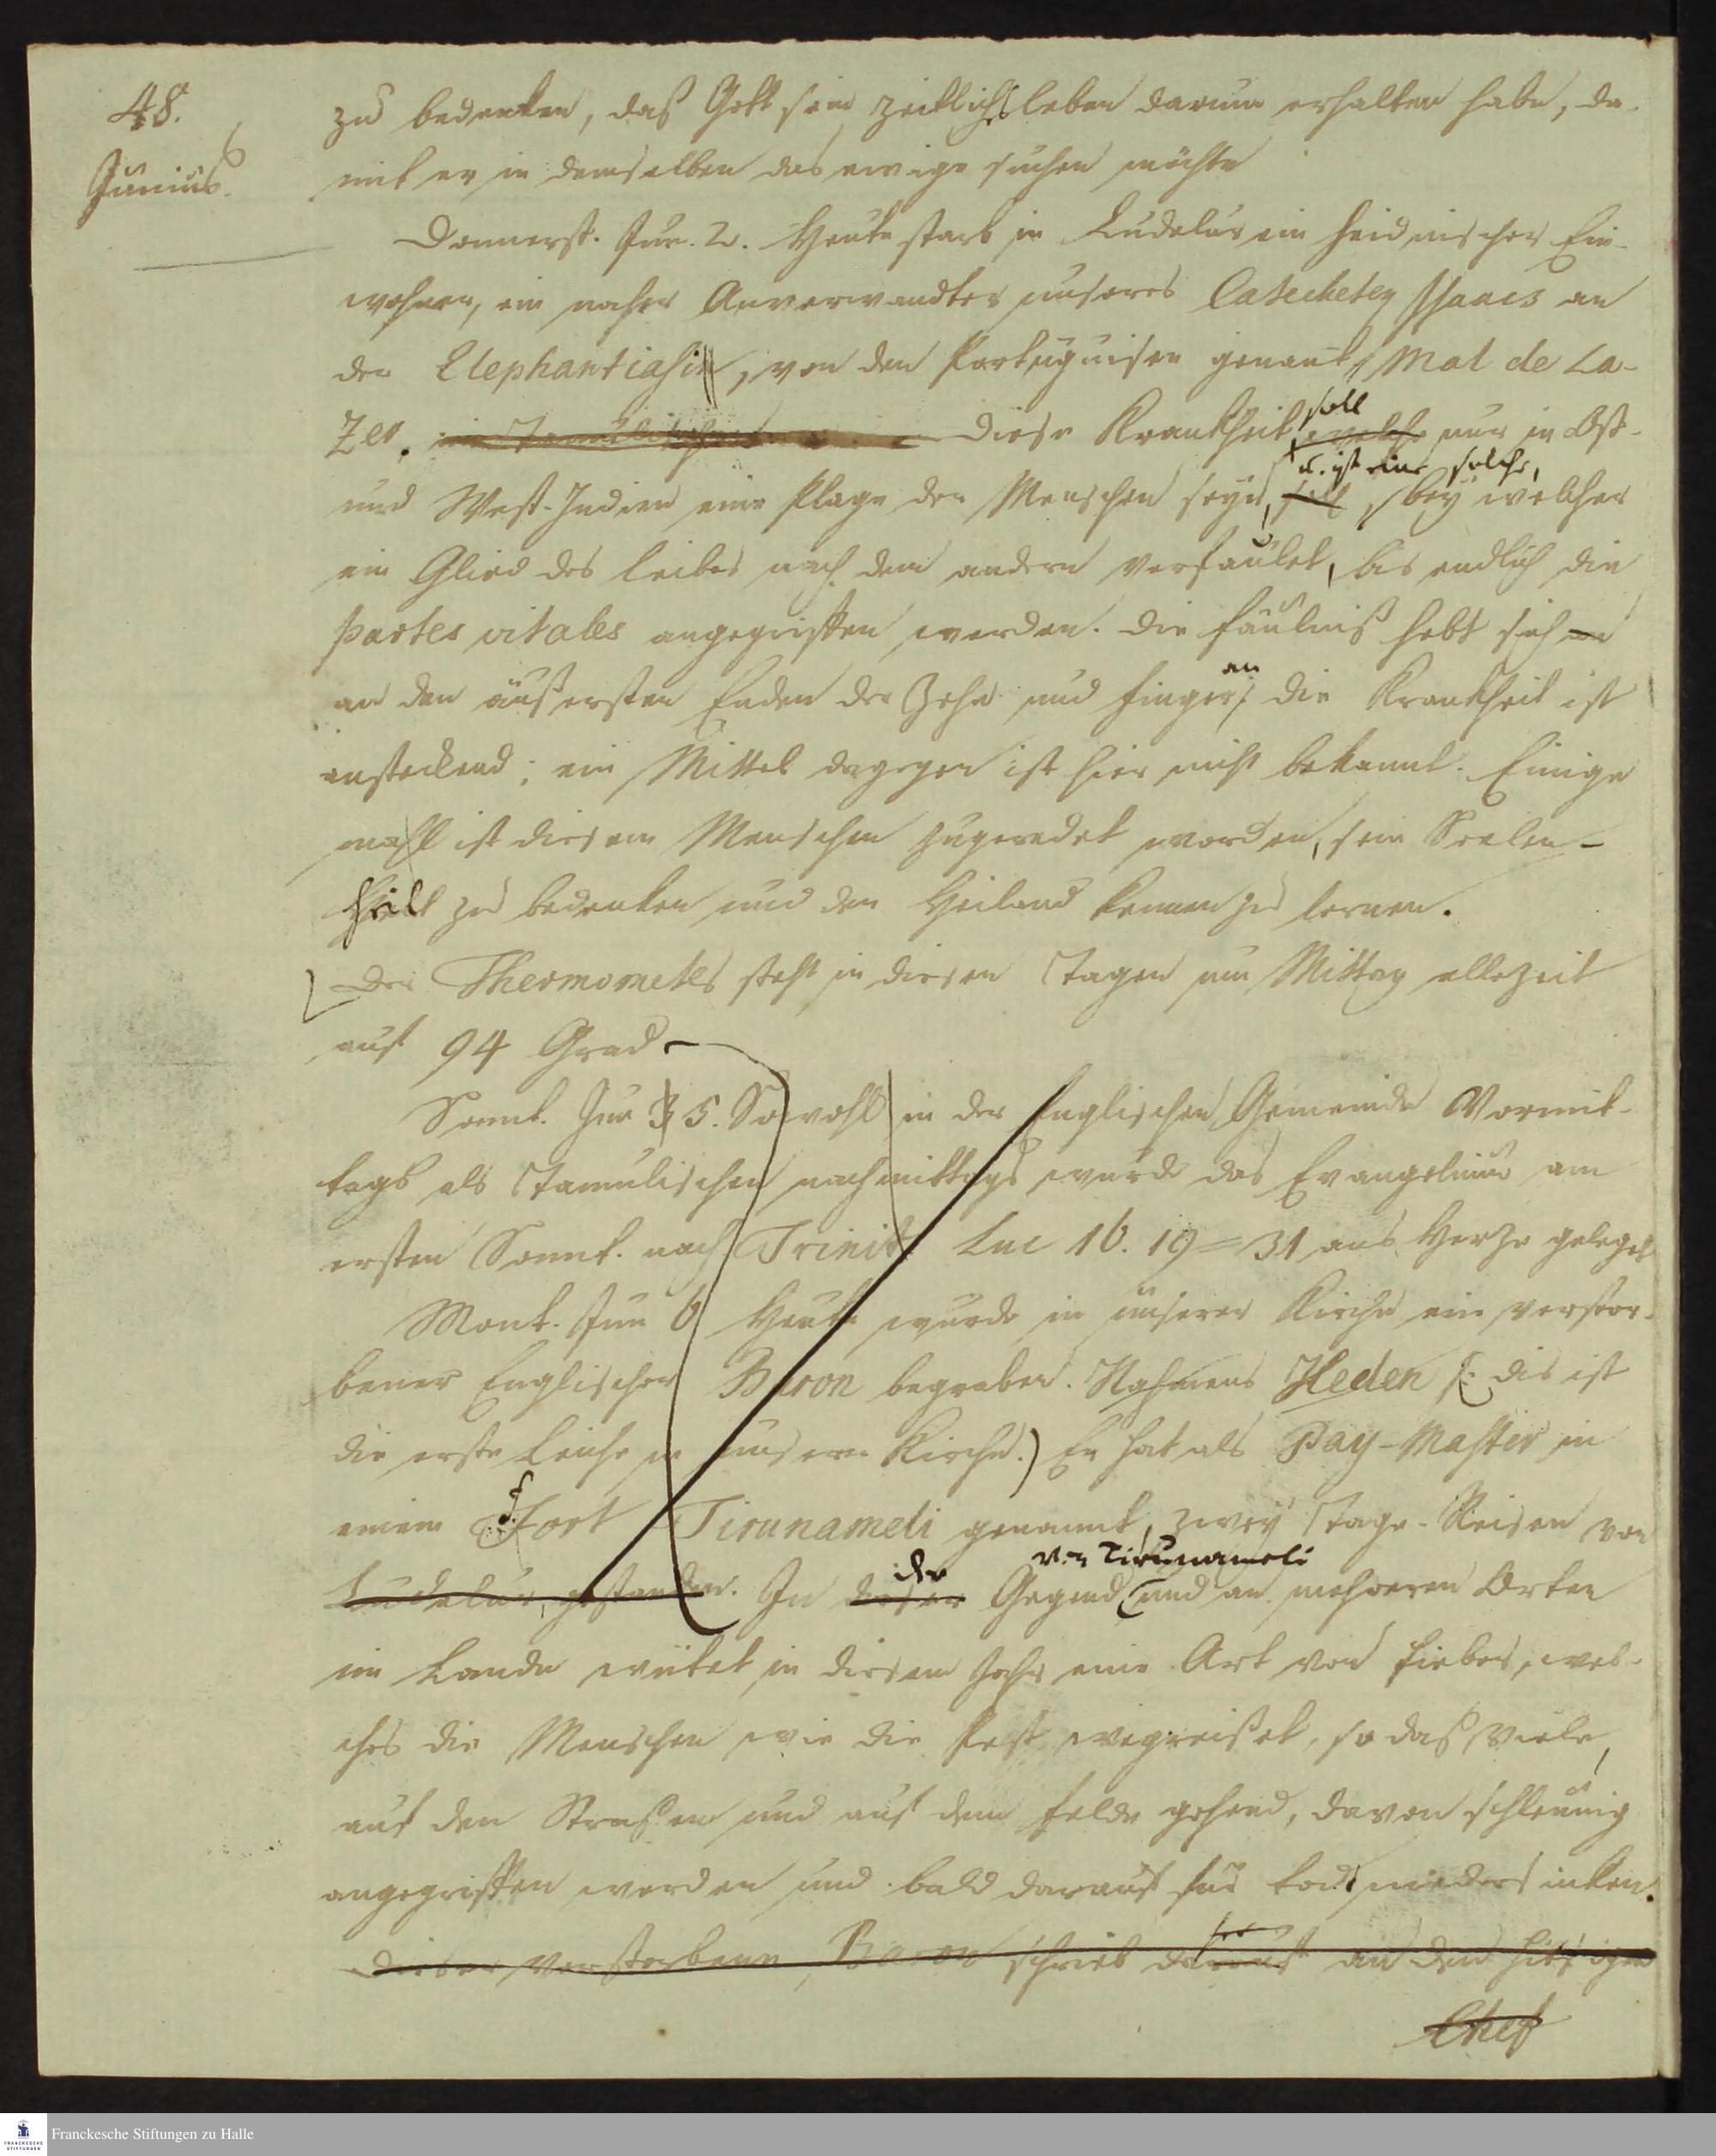 48.
Junius.
zu bedenken, daß Gott sein zeitliches leben darum erhalten habe, da-
mit er in demselben das ewige suchen möchte
Donnerst. Jun. 2. Heute starb in Cudelur ein heidnischer Ein-
wohner, ein naher Anverwandter unseres Catecheten Isaacs an
der Elephantiasin, von den Portuguisen genant, Mal de La-
Zer. im Tamulischen Diese Krankheit welche soll nur in Ost-
und West-Indien eine Plage der Menschen seyn, soll u. ist eine solche, bey welcher
ein Glied des Leibes nach dem andern verfaulet, bis endlich die
partes vitales angegriffen werden. Die Fäulniß hebt sich an
an den äußersten Enden der Zehe und Finger an, die Krankheit ist
ansteckend; ein Mittel dagegen ist hier nicht bekannt. Einige
mahl ist diesem Menschen zugeredet worden, sein Seelen-
Heil zu bedenken und den Heiland kennen zu lernen.
Der Thermometer steht in diesen Tagen um Mittag allezeit
auf 94 Grad
Sonnt. Jun 5. Sowohl in der Englischen Gemeinde Vormit-
tags als Tamulischen nachmittags wurde das Evangelium am
ersten Sonnt. nach Trinit. Luc 16. 19=31 ans Herze geleget
Mont. Jun 6 Heute wurde in unserer Kirche ein verstor-
bener Englischer Baron begraben. Nahmens Heden (: dis ist
die erste Leiche in unserer Kirche.) Er hat als Pay-Master in
einem Fort Tirunameli genannt, zwey Tage-Reisen von
Cudelur, gestanden. In dieser der Gegend von Tirunameli und an mehreren Orten
im Lande wütet in diesem Jahr eine Art von Fieber, wel-
ches die Menschen wie die Pest wegreißet, so daß viele,
auf den Straßen und auf dem Felde gehend, davon schleunig
angegriffen werden und bald darauf für todt niedersinken.
Dieser verstorbene Baron schrieb darauf an den hiesigen
Chef
Franckesche Stiftungen zu Halle